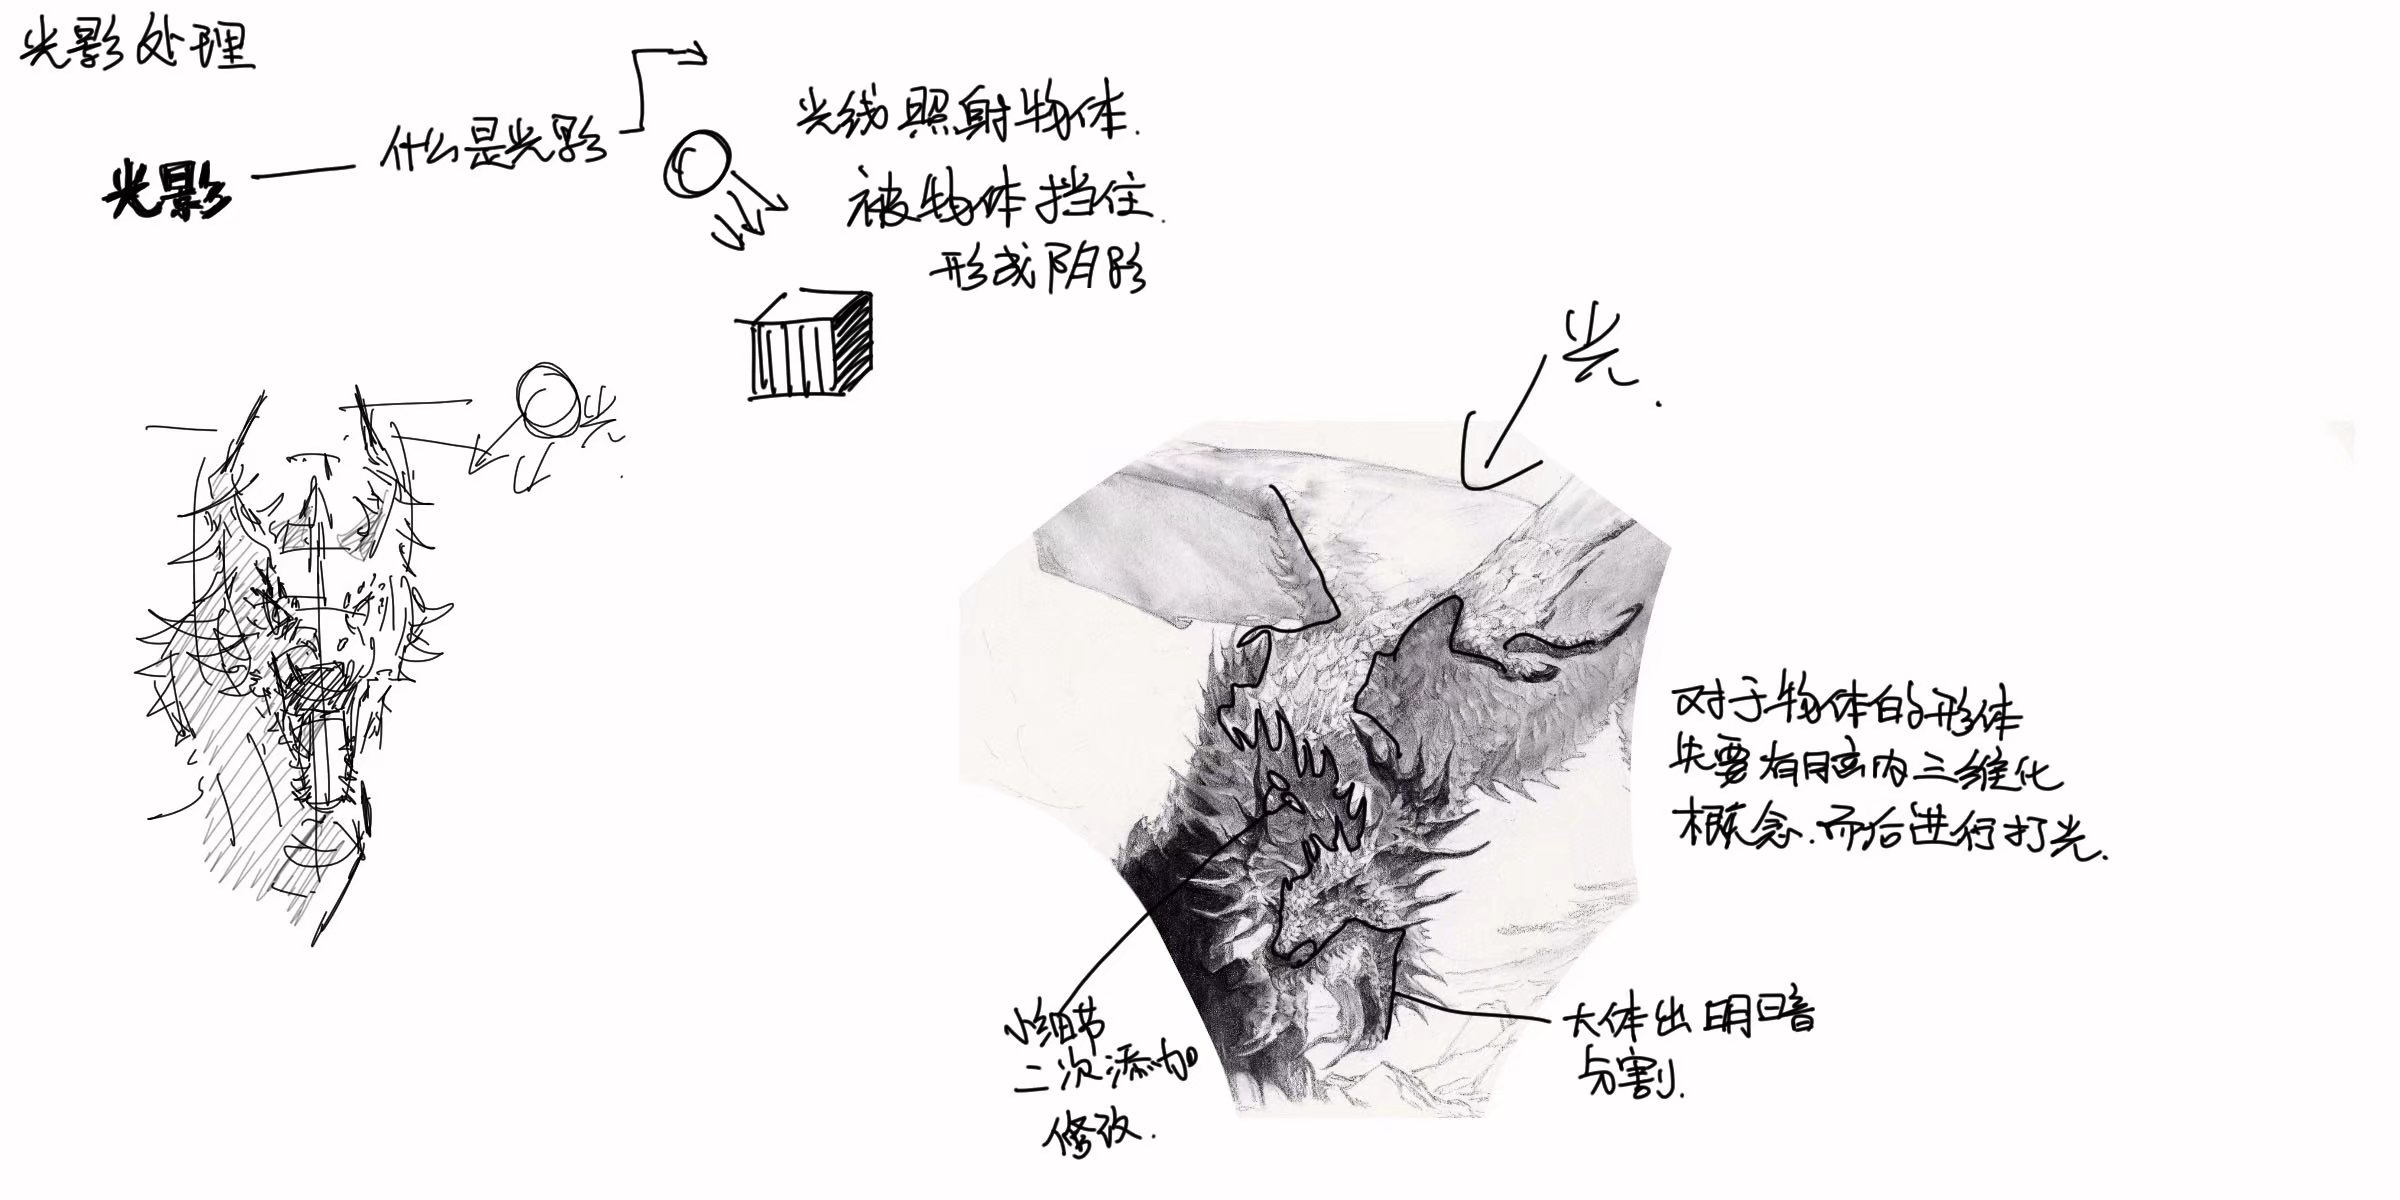 光影处理
光影
什么是光影
光线照射物体.
被物体挡住.
形成阴影
光.
光.
对于物体的形体
先要有脑内三维化
概念.而后进行打光.
小细节
二次添加
修改.
大体出明暗
分割.